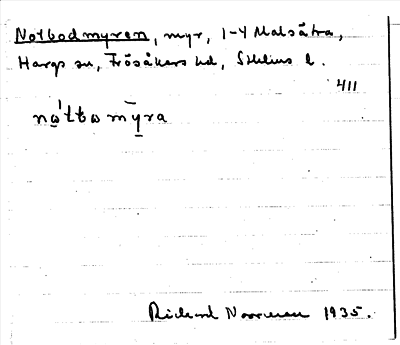 Notbodmyren, myr, 1-4 Malsätra,
Hargs sn, Frösåkers hd, Sthlms l.
411
nώ̱tbω mȳ̱ra
Rickard Norrman 1935.